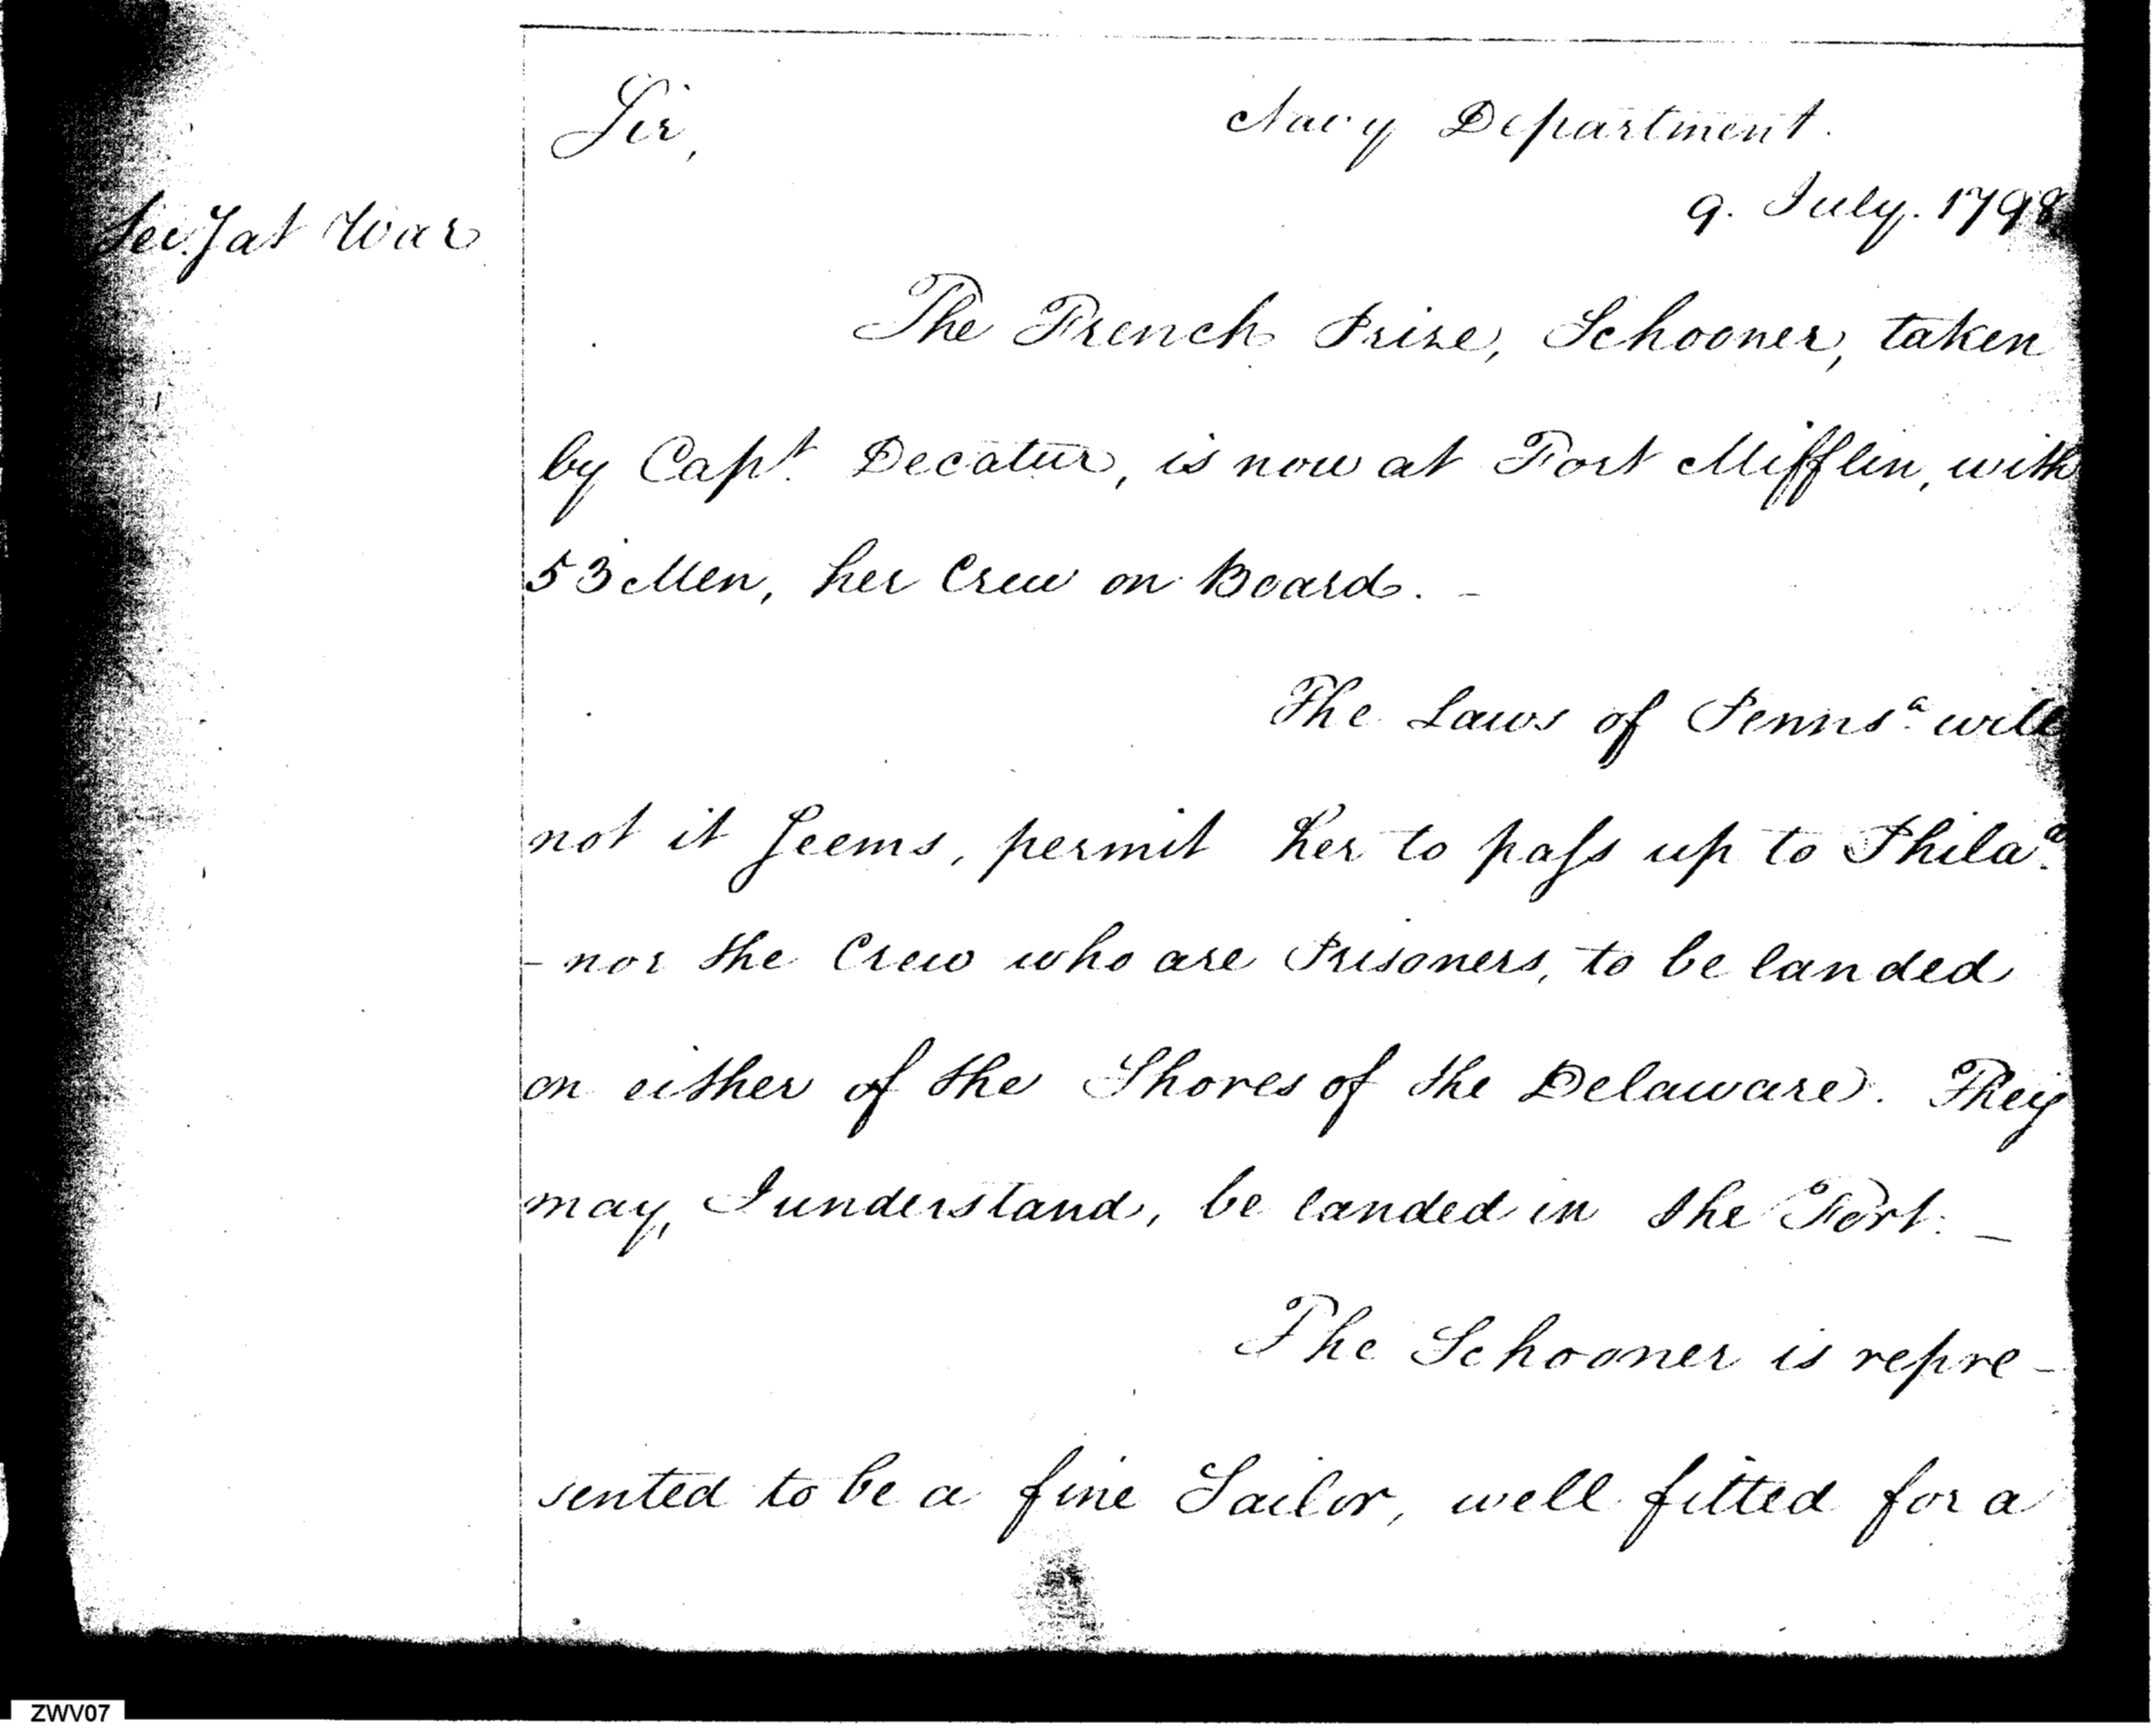 Sir,
Navy Department.
9. July. 1798
Secy at War
The French Prize, Schooner, taken
by Capt. Decatur, is now at Fort Mifflin, with
53 Men, her Crew on Board. -
The Laws of Pennsa. will
not it Seems, permit her to pass up to Philaa.
- nor the Crew who are Prisoners, to be landed
on either of the Shores of the Delaware. They
may, I understand, be landed in the Fort. -
The Schooner is repre-
sented to be a fine Sailor, well fitted for a
ZWV07